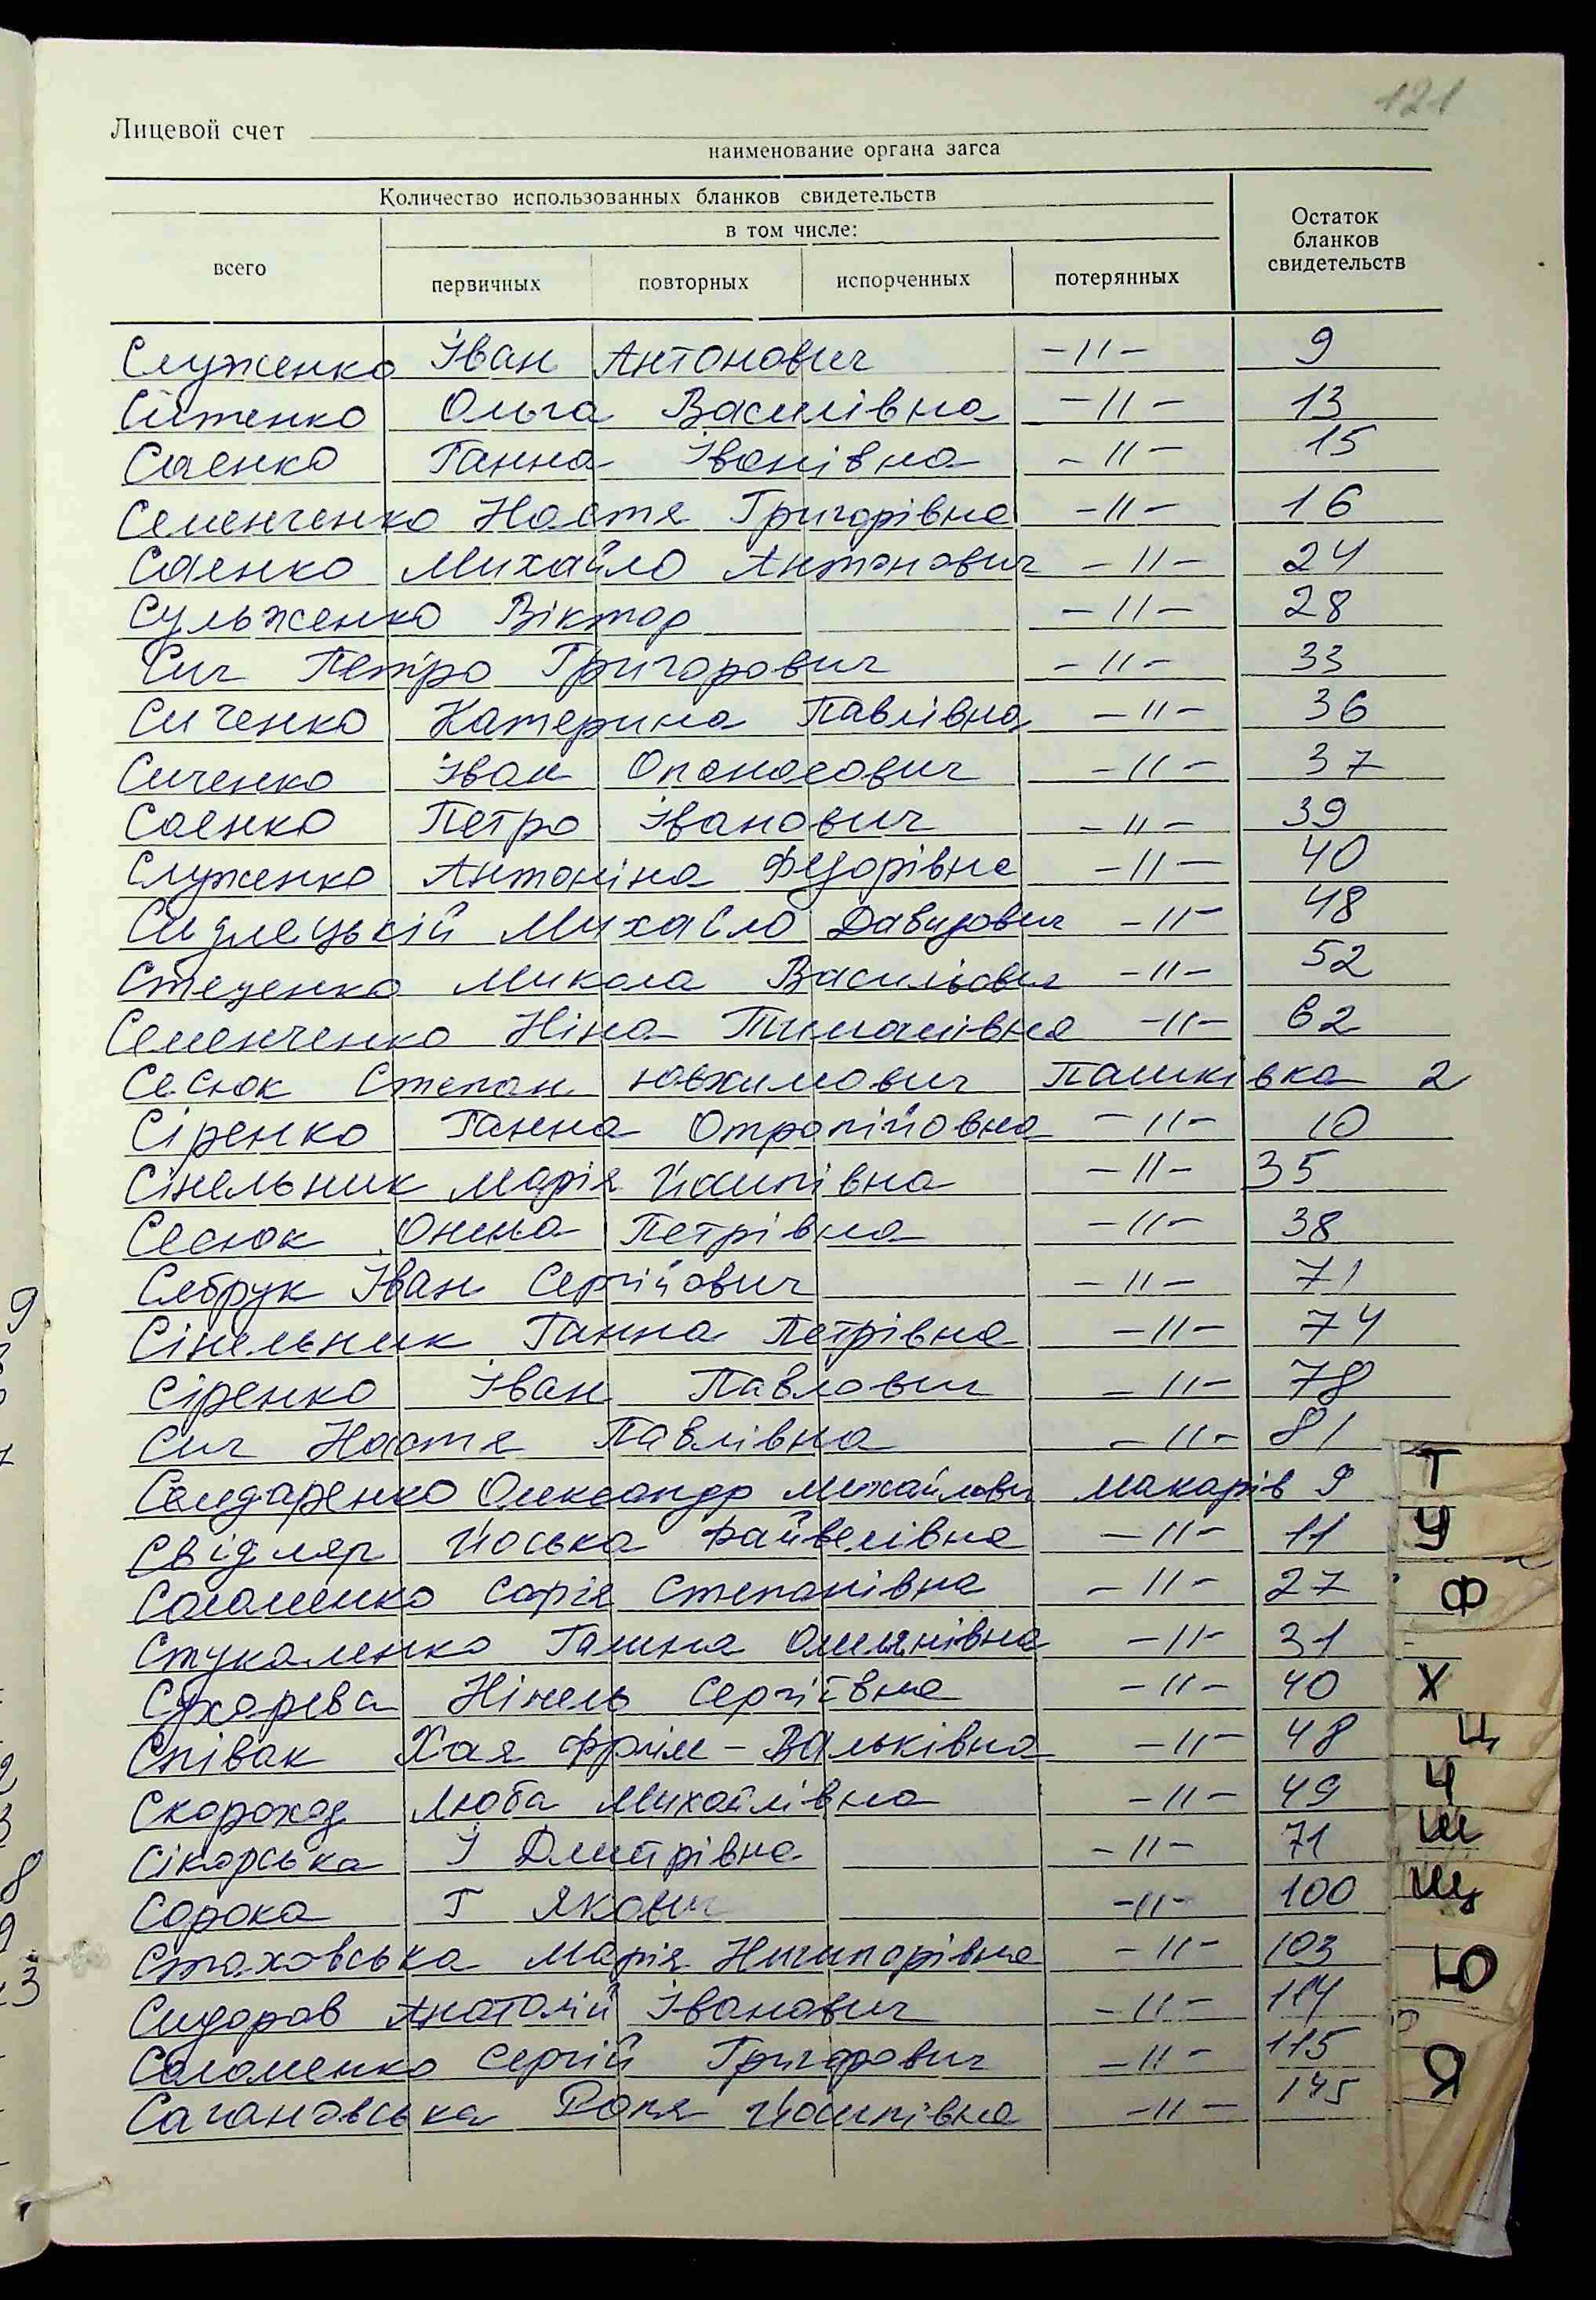 121
Лицевой счет
наименование органа загса
Количество использованных бланков свидетельств
в том числе:
всего первичных повторных испорченных потерянных Остаток бланков свидетельств
Служенко Іван Антонович -"- 9
Ситенко Ольга Василівна -"- 13
Саенко Ганна Іванівна -"- 15
Семенченко Настя Григорівна -"- 16
Саенко Михайло Антонович -"- 24
Сульженко Віктор -"- 28
Сич Петро Григорович -"- 33
Сиченко Катерина Павлівна -"- 36
Сиченко Іван Опанасович -"- 37
Саенко Петро Іванович -"- 39
Служенко Антоніна Федорівна -"- 40
Сидлецькій Михайло Давидович -"- 48
Стеценко Микола Васильович -"- 52
Семенченко Ніна Тимошівна -"- 62
Сесюк Степан Ювхимович Пашківка 2
Сіренко Ганна Отропійовна -"- 10
Сінельник Марія Йосипівна -"- 35
Сесюк Онина Петрівна -"- 38
Сябрук Іван Сергійович -"- 71
Сінельник Ганна Петрівна -"- 74
Сіренко Іван Павлович -"- 78
Сич Настя Павлівна -"- 81
Сандаренко Олександр Михайлович Макарів 9
Свідляр Йоська Файвелівна -"- 11
Соломенко Софія Степанівна -"- 27
Стукаленко Галина Омелянівна -"- 31
Сухарева Нінель Сергіївна -"- 40
Співак Хая Фроім-Вальківна -"- 48
Скороход Люба Михайлівна -"- 49
Сікорська І Дмитрівна -"- 71
Сорока Г Якович -"- 100
Стаховська Марія Ничипорівна -"- 103
Сидоров Анатолій Іванович -"- 114
Соломенко Сергій Григорович -"- 115
Сагановська Роня Йосипівна -"- 145
Т
У
Ф
Х
Ц
Ч
Ш
Щ
Ю
Я